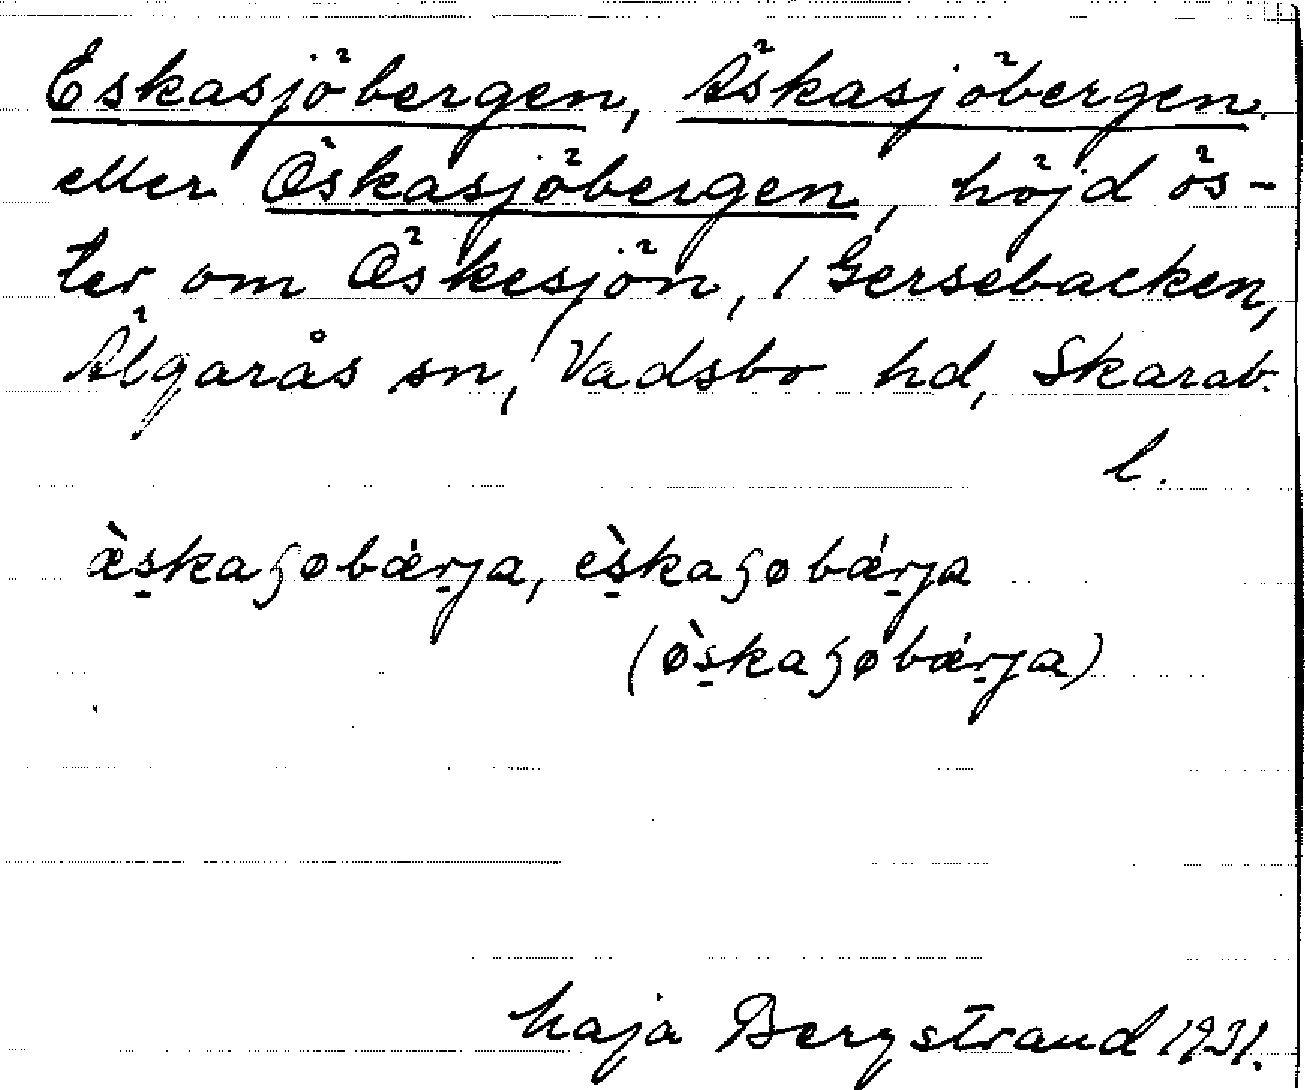 Eskasjöbergen, Äskasjöbergen
eller Öskasjöbergen, höjd ös-
ter om Öskesjön, i Gersebacken,
Älgarås sn, Vadsbo hd, Skarab.
l.
æ̀s̠kaʂøbǽr̠ja, ès̠kaʂøbǽr̠ja
(ø̀s̠kaʂøbǽr̠ja)
Maja Bergstrand 1931.